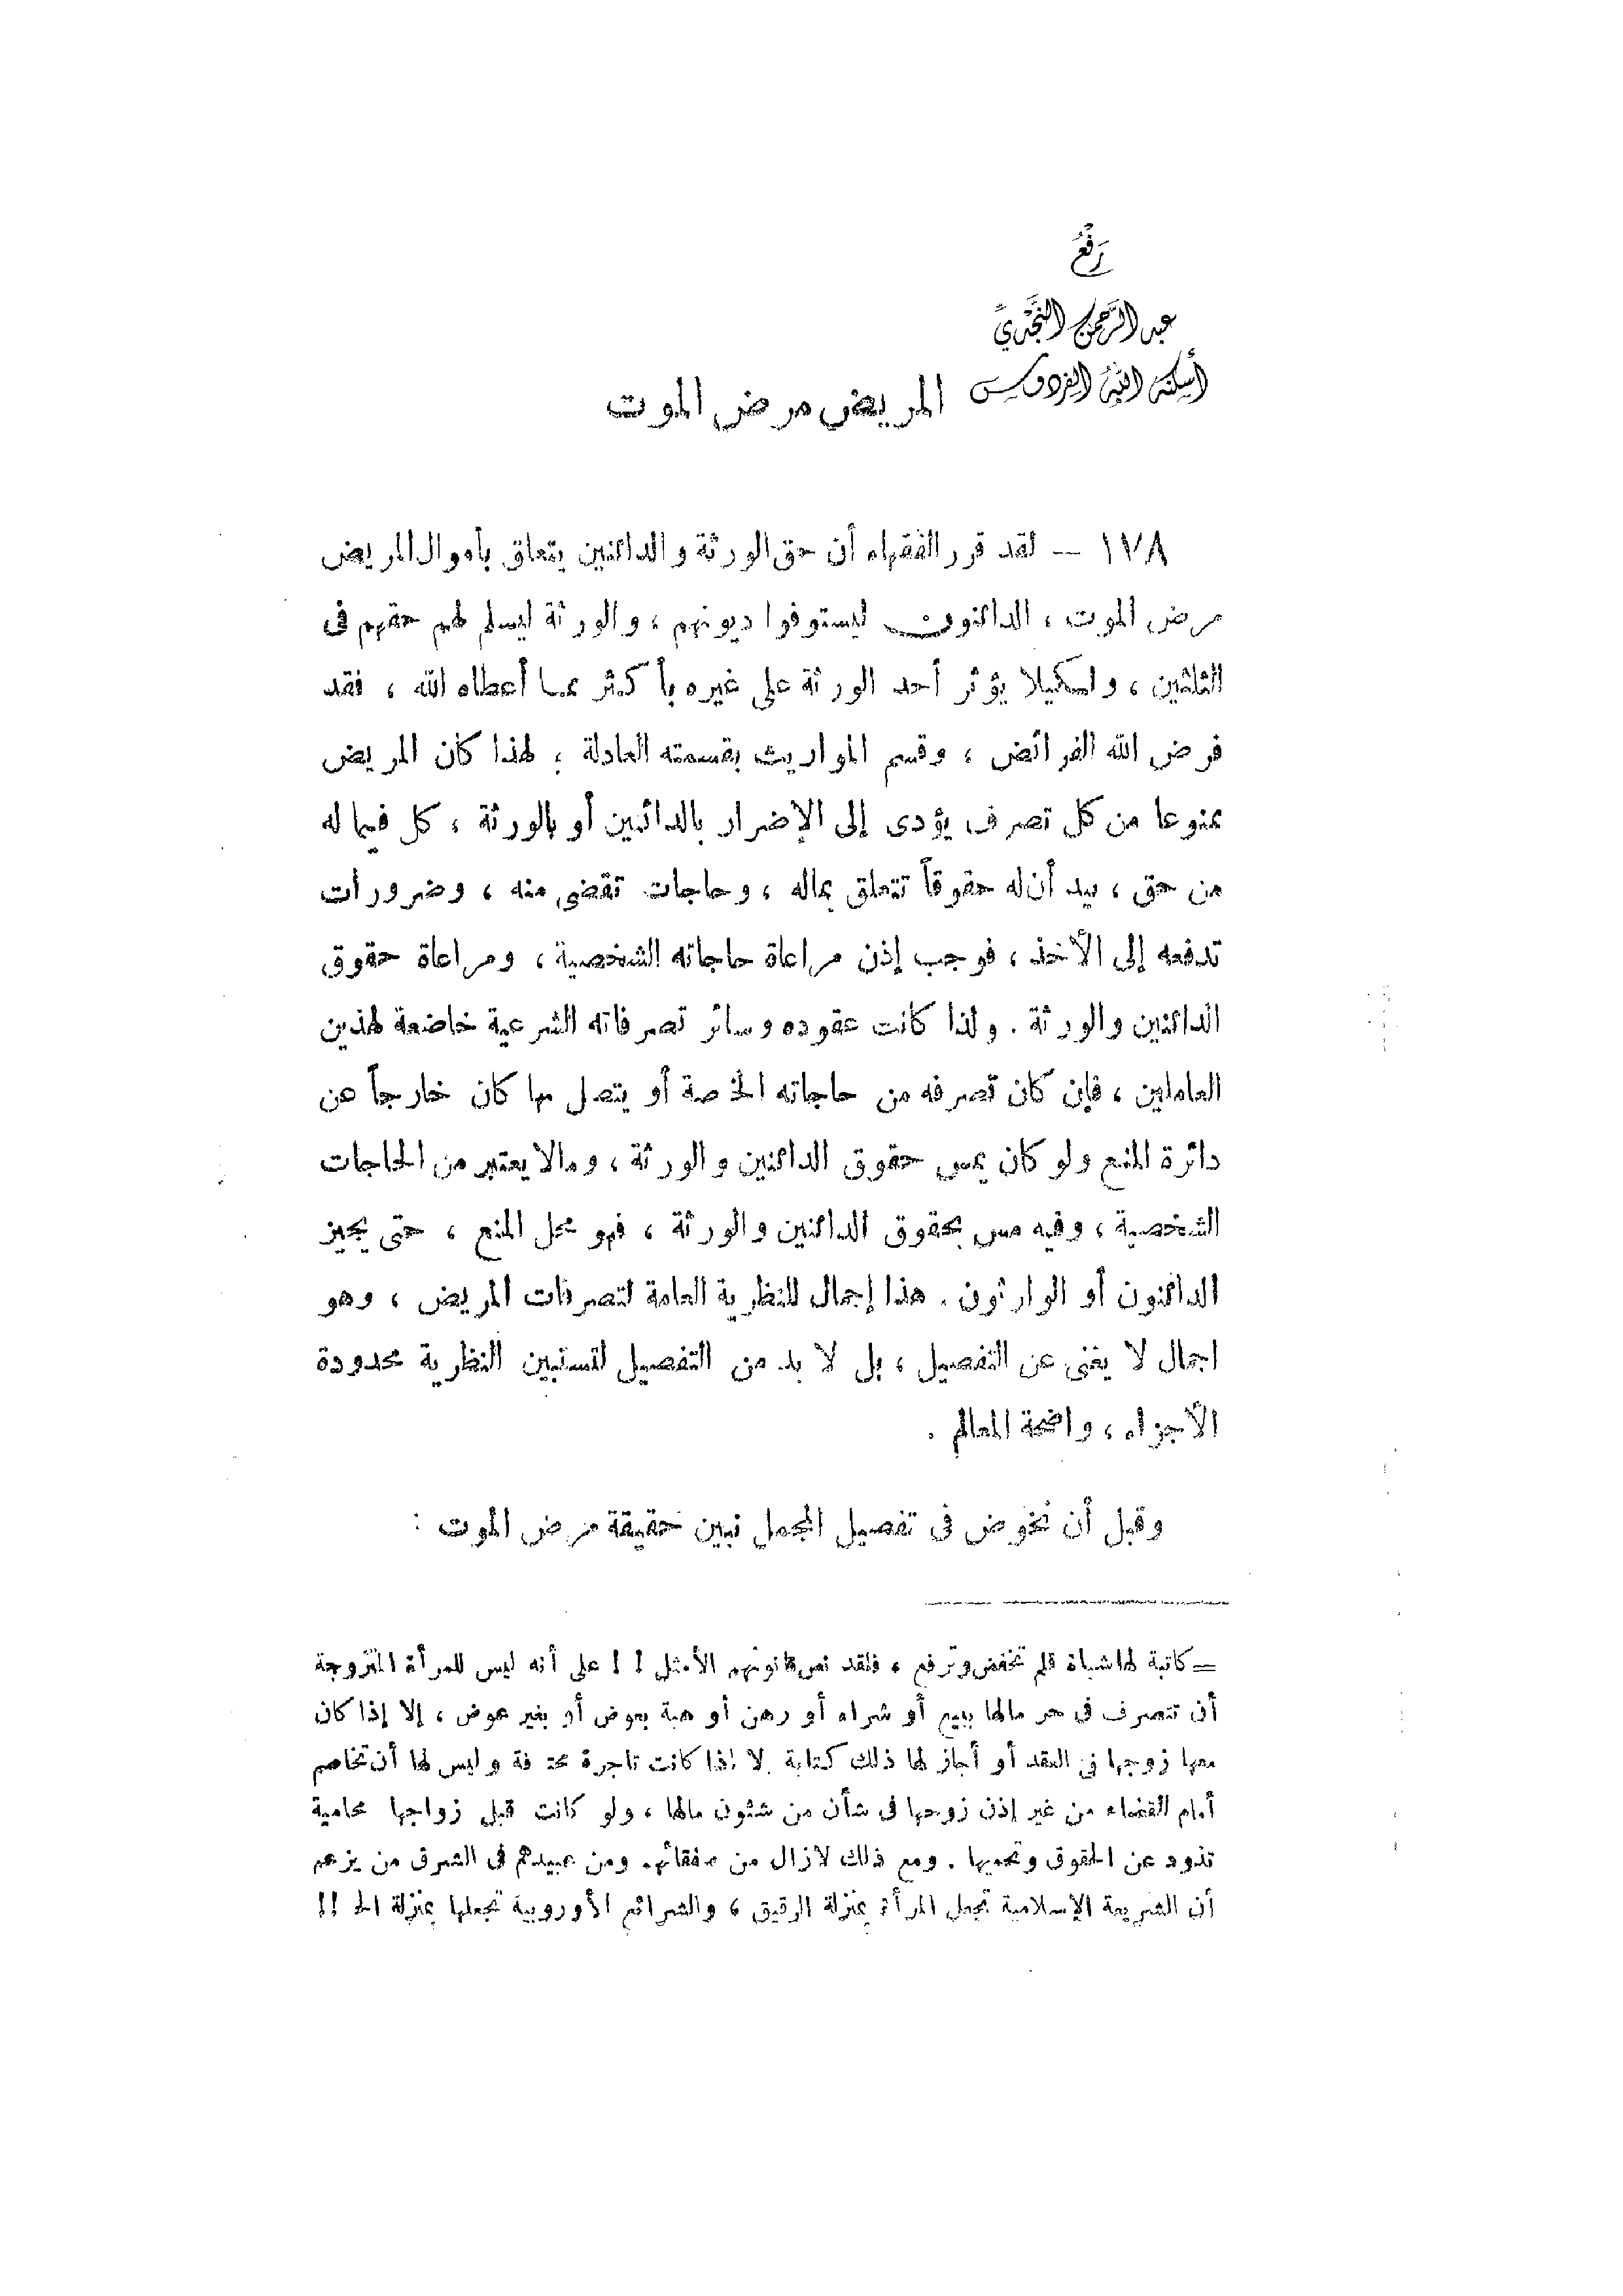 رَفْعُ
عبد الرَّحمن النَّجْديِّ
أسكنه اللهُ الفردوس
المريض مرض الموت
١٧٨ — لقد قرر الفقهاء أن حق الورثة والدائنين يتعلق بأموال المريض
مرض الموت ، الدائنون ليستوفوا ديونهم ، والورثة ليسلم لهم حقهم فى
الثلثين ، ولكيلا يؤثر أحد الورثة على غيره بأكثر مما أعطاه الله ، فقد
فرض الله الفرائض ، وقسم المواريث بقسمته العادلة ؛ لهذا كان المريض
ممنوعا من كل تصرف يؤدى إلى الإضرار بالدائنين أو بالورثة ، كل فيما له
من حق ، بيد أن له حقوقاً تتعلق بماله ، وحاجات تقضى منه ، وضرورات
تدفعه إلى الأخذ ، فوجب إذن مراعاة حاجاته الشخصية ، ومراعاة حقوق
الدائنين والورثة . ولذا كانت عقوده وسائر تصرفاته الشرعية خاضعة لهذين
العاملين ، فإن كان تصرفه من حاجاته الخاصة أو يتصل بها كان خارجاً عن
دائرة المنع ولو كان يمس حقوق الدائنين والورثة ، ومالا يعتبر من الحاجات
الشخصية ، وفيه مس بحقوق الدائنين والورثة ، فهو محل المنع ، حتى يجيز
الدائنون أو الوارثون . هذا إجمال للنظرية العامة لتصرفات المريض ، وهو
اجمال لا يغنى عن التفصيل ، بل لا بد من التفصيل لتستبين النظرية محدودة
الأجزاء ، واضحة المعالم .
وقبل أن نخوض فى تفصيل المجمل نبين حقيقة مرض الموت :
= كاتبة لها شباة قلم تخفض وترفع ، فلقد نص قانونهم الأمثل ! ! على أنه ليس للمرأة المتزوجة
أن تتصرف فى حر مالها ببيع أو شراء أو رهن أو هبة بعوض أو بغير عوض ، إلا إذا كان
معها زوجها فى العقد أو أجاز لها ذلك كتابة إلا إذا كانت تاجرة محترفة وليس لها أن تخاصم
أمام القضاء من غير إذن زوجها فى شأن من شئون مالها ، ولو كانت قبل زواجها محامية
تذود عن الحقوق وتحميها . ومع ذلك لازال من صفقائهم ومن عبيدهم فى الشرق من يزعم
أن الشريعة الإسلامية تجعل المرأة بمنزلة الرقيق ، والشرائع الأوروبية تجعلها بمنزلة الحر !!